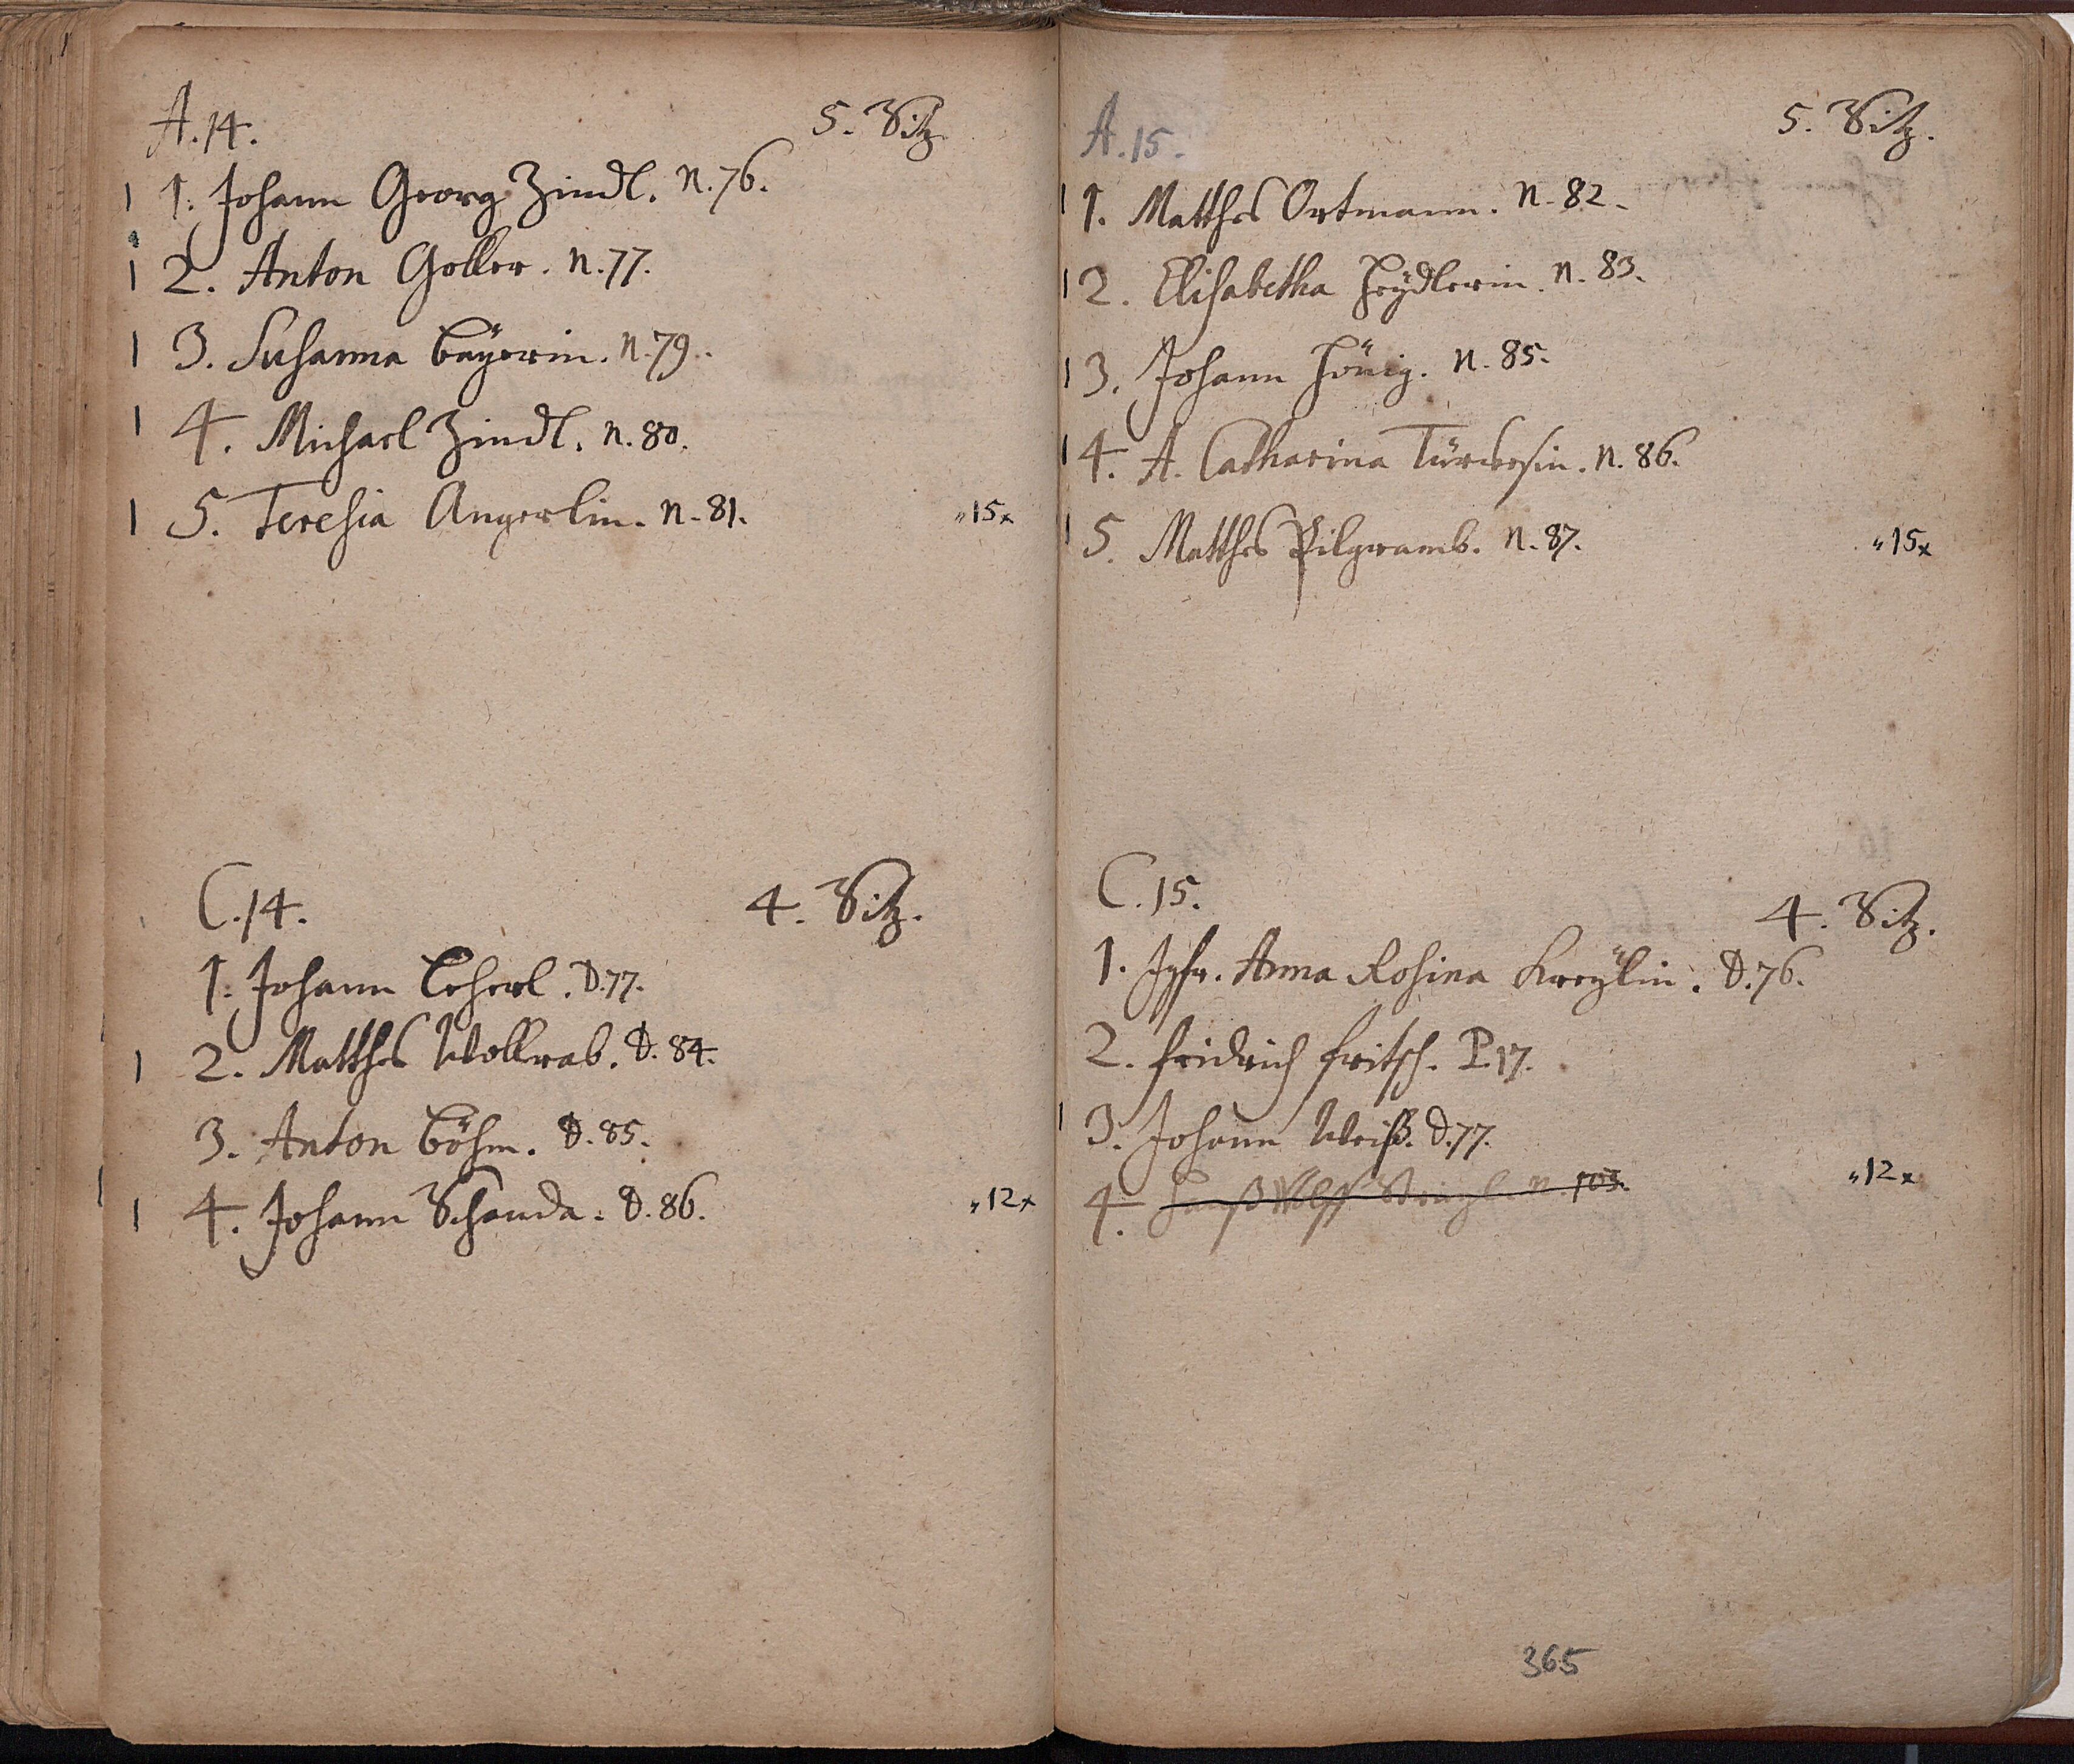 A. 14. 5. Sitz.
1. Johann Georg Zindl. N. 76.
2. Anton Goller. N. 77.
3. Susanna Bäyerin. N. 79.
4. Michael Zindl. N. 80.
5. Teresia Angerlin. N. 81. 15x
C. 14. 4. Sitz.
1. Johann Leherl. D. 77.
2. Matthes Wollrab. D. 84.
3. Anton Böhm. D. 85.
4. Johann Schanda. D. 86. 12x
A. 15. 5. Sitz.
1. Matthes Ortmann. N. 82.
2. Elisabetha Heÿdlerin. N. 83.
3. Johann Hönig. N. 85.
4. A. Catharina N. 86.
5. Matthes Pilgramb. N. 87. 15x
C. 15. 4. Sitz.
1. Jgfr. Anna Rosina Kreÿlin. D. 76.
2. Fridrich Fritsch. P. 17.
3. Johann Weiß. D. 77.
4. Hanß Wolff N. 103. 12x
365